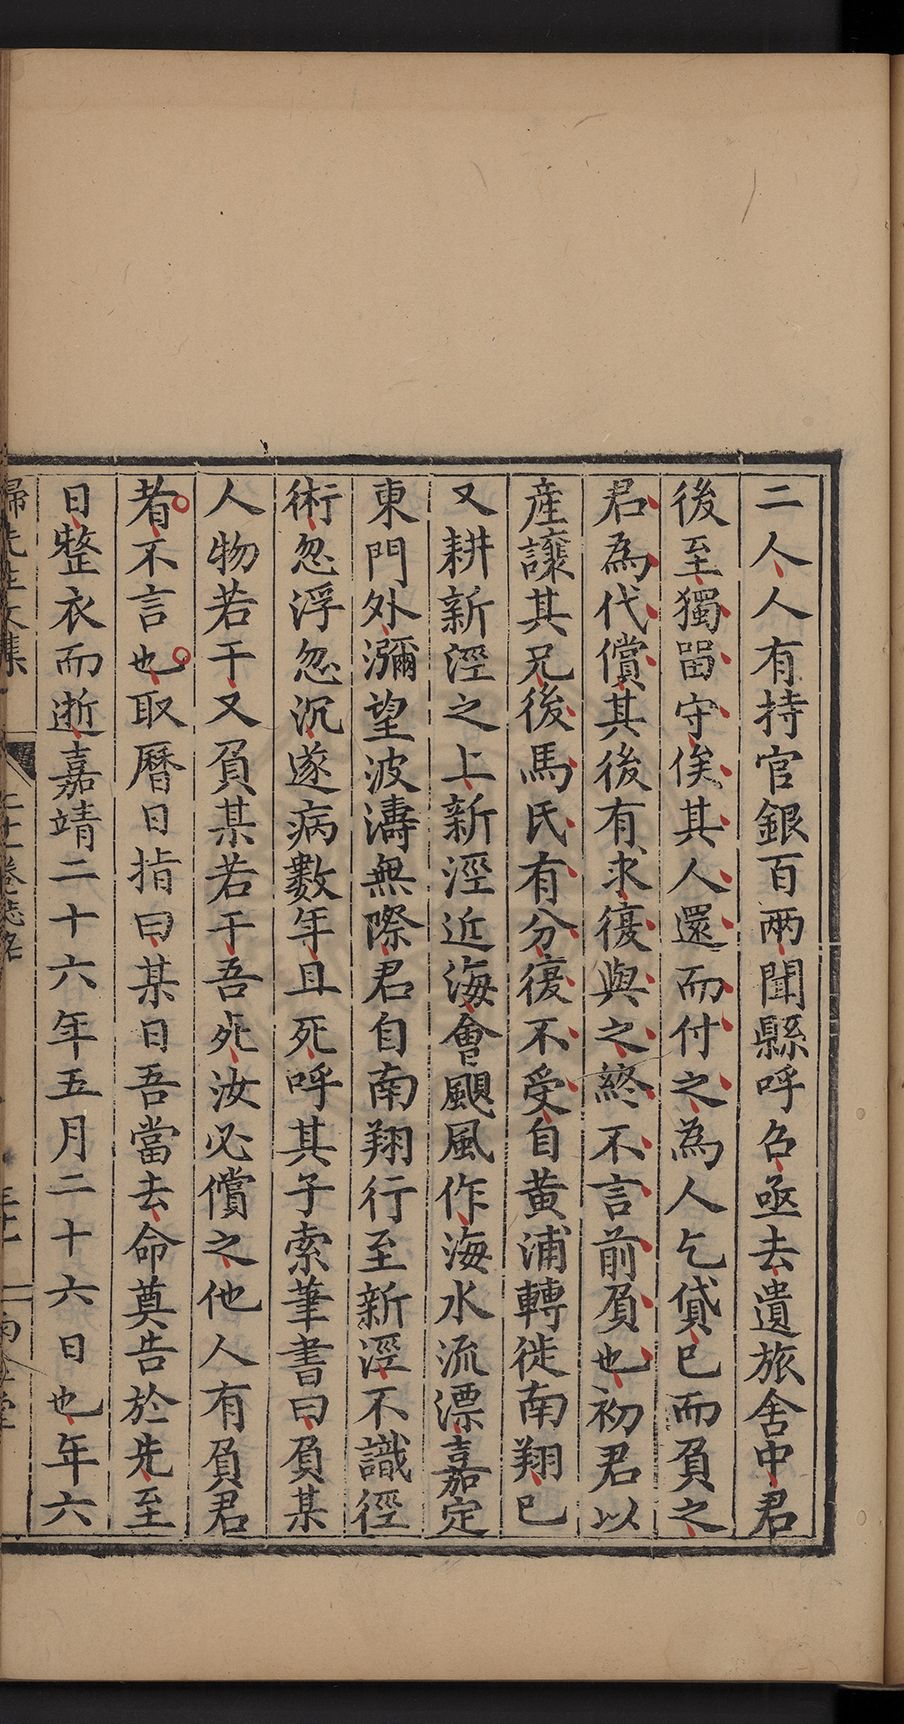 二人人有持官銀百兩聞縣呼召亟去遺旅舍中君
後至獨畱守俟其人還而付之為人乞貸已而負之
君為代償其後有求復與之終不言前負也初君以
產讓其兄後馬氏有分復不受自黄浦轉徙南翔已
又耕新涇之上新涇近海會颶風作海水流漂嘉定
東門外瀰望波濤無際君自南翔行至新涇不識徑
術忽浮忽沉遂病數年且死呼其子索筆書曰負某
人物若干又負某若干吾死汝必償之他人有負君
者不言也取曆日指曰某日吾當去命奠告於先至
日整衣而逝嘉靖二十六年五月二十六日也年六
歸先生文集